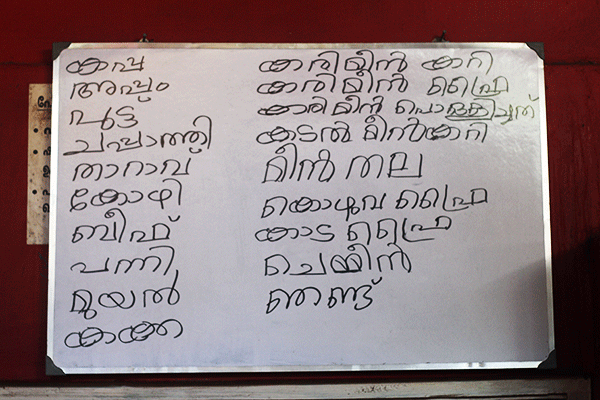 കപ്പ
അപ്പം
പുട്ട്
ചപ്പാത്തി
താറാവ്
കോഴി
ബീഫ്
പന്നി
മുയൽ
കക്ക
കരിമീൻ കറി
കരിമീൻ ഫ്രൈ
കരിമീൻ പൊള്ളിച്ചത്
കടൽ മീൻകറി
മീൻ തല
കൊഴുവ ഫ്രൈ
കാട ഫ്രൈ
ചെമ്മീൻ
ഞണ്ട്